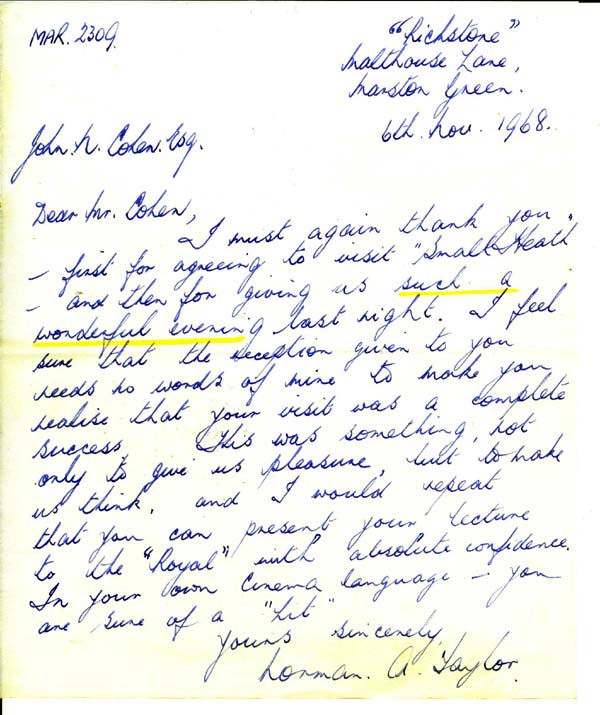 MAR. 2309.
"Richstone"
Malthouse Lane,
Marston Green.
6th. Nov. 1968.
John. N. Cohen. Esq.
Dear Mr. Cohen,
I must again thank you
- first for agreeing to visit "Small Heath"
- and then for giving us such a
wonderful evening last night. I feel
sure that the reception given to you
needs no words of mine to make you
realise that your visit was a complete
success. This was something, not
only to give us pleasure, but to make
us think, and I would repeat
that you can present your lecture
to the "Royal" with absolute confidence.
In your own Cinema language - you
are sure of a "hit"
Yours sincerely,
Norman. A. Taylor.